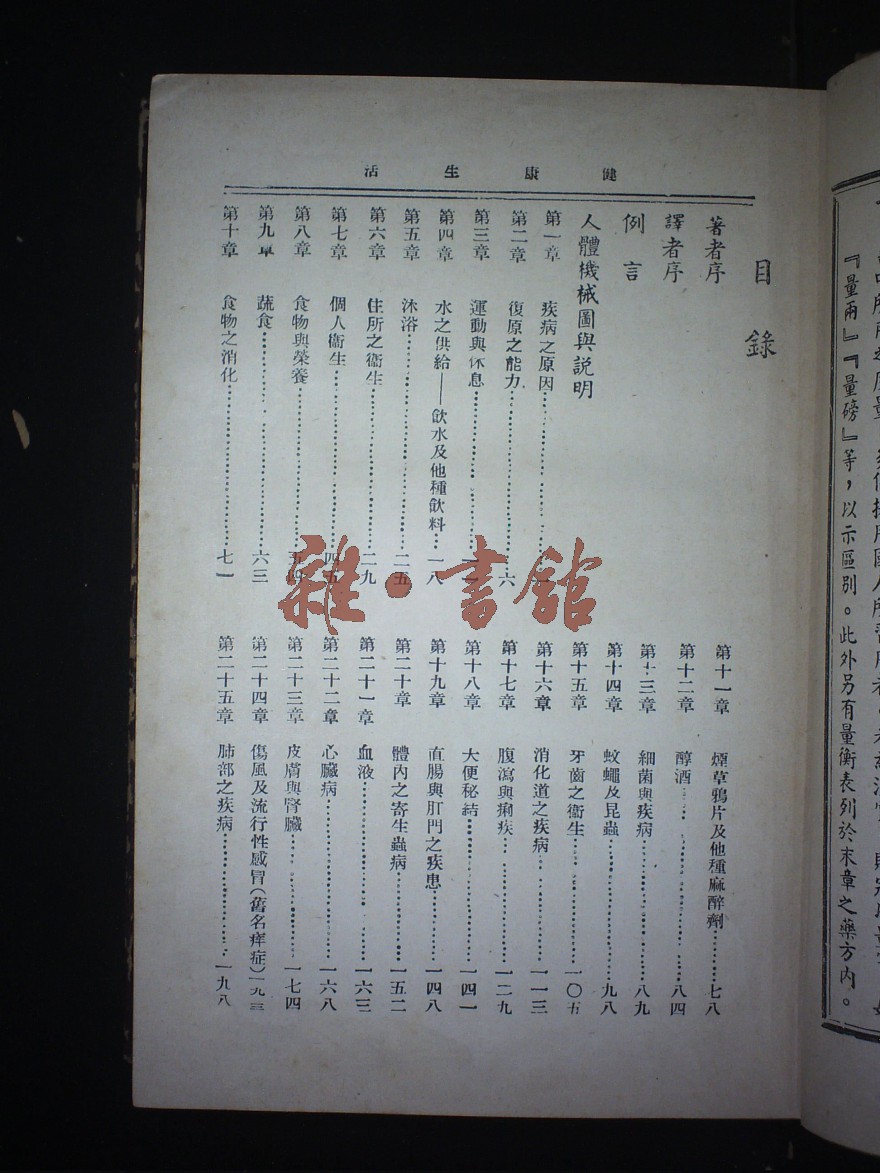 健康生活
目錄
著者序
譯者序
例言
人體機械圖與說明
第一章 疾病之原因
第二章 復原之能力 六
第三章 運動與休息
第四章 水之供給——飲水及他種飲料 一八
第五章 沐浴 二五
第六章 住所之衞生 二九
第七章 個人衞生 四五
第八章 食物與榮養 五四
第九章 蔬食 六三
第十章 食物之消化 七一
第十一章 煙草鴉片及他種麻醉劑 七八
第十二章 醇酒 八四
第十三章 細菌與疾病 八九
第十四章 蚊蠅及昆蟲 九八
第十五章 牙齒之衞生 一〇五
第十六章 消化道之疾病 一一三
第十七章 腹瀉與痢疾 一二九
第十八章 大便秘結 一四一
第十九章 直腸與肛門之疾患 一四八
第二十章 體內之寄生蟲病 一五二
第二十一章 血液 一六三
第二十二章 心臟病 一六八
第二十三章 皮膚與腎臟 一七四
第二十四章 傷風及流行性感冒(舊名痒症) 一九三
第二十五章 肺部之疾病 一九八
『量兩』『量磅』等，以示區別。此外另有量衡表列於末章之藥方內。
雜·書館